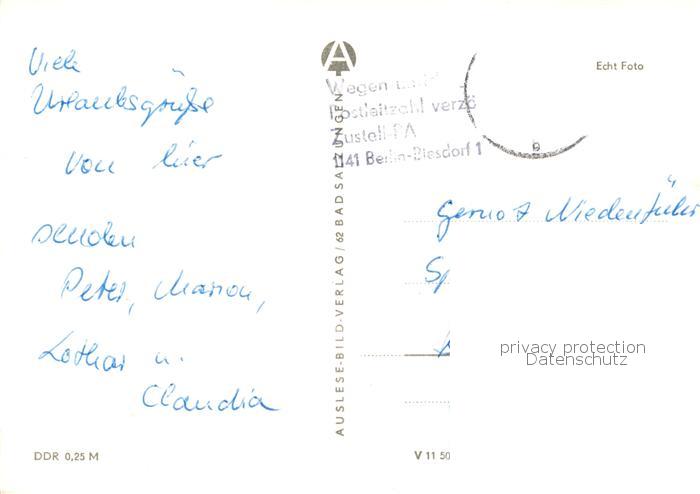 Viele
Urlaubsgrüße
von hier
senden
Peter, Marion,
Lothar u.
Claudia
DDR 0,25 M
AUSLESE-BILD-VERLAG / 62 BAD SALZUNGEN
A
Wegen
Postleitzahl verzö
Zustell-PA
1141 Berlin-Biesdorf 1
Echt Foto
Gernot Niedenführ
Sp
privacy protection
Datenschutz
V 11 50